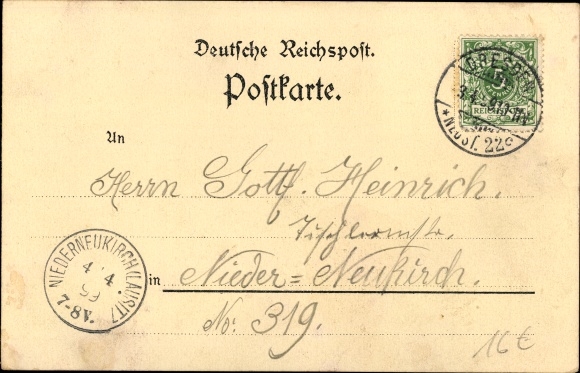 Deutsche Reichspost.
Postkarte.
DRESDEN
NEUST. 22c
REICHSPOST
An
Herrn Gottf. Heinrich.
Tischlermstr.
in Nieder=Neukirch.
No. 319.
NIEDERNEUKIRCH (LAUSITZ)
4 4.
99
7-8V.
16€